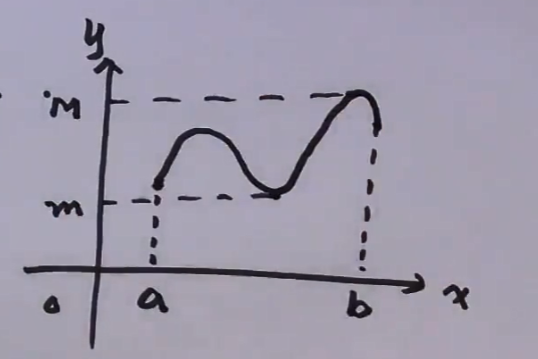 y
M
m
o a b x